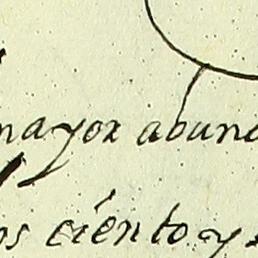 mayor abund
os ciento y